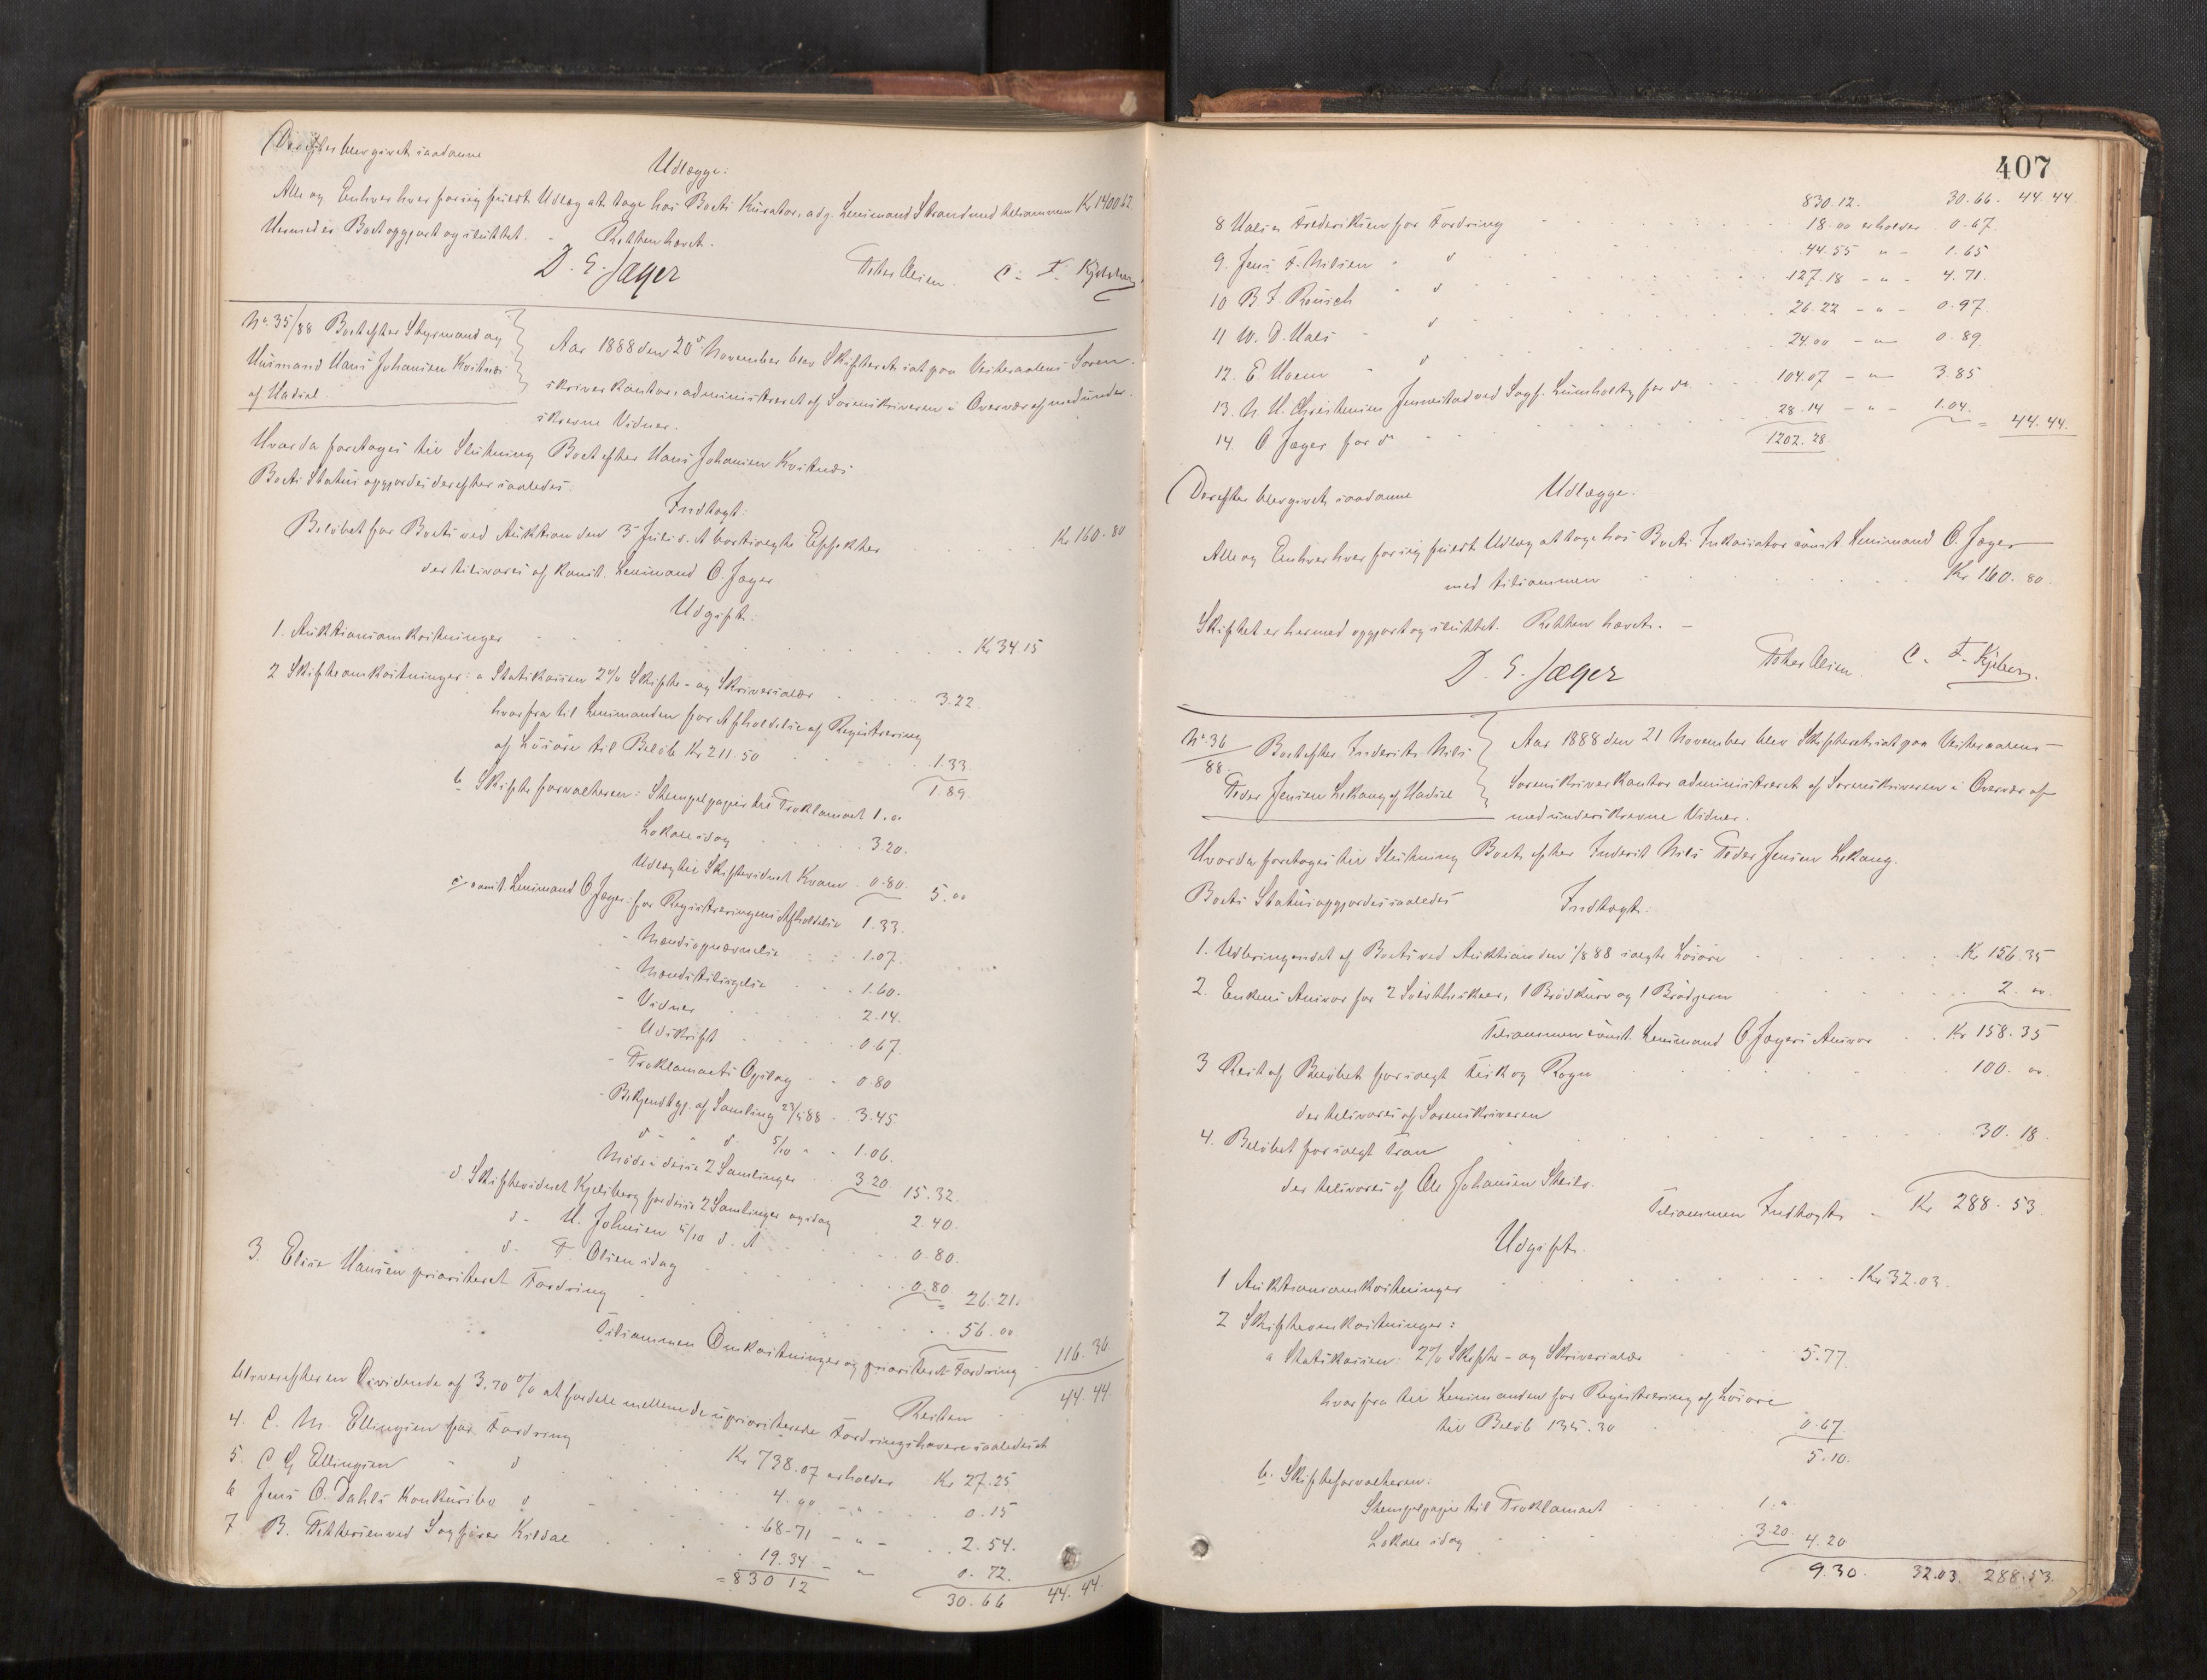 Derefter blev givet saadanne
Udlægge:
Alle og Enhver hver for sig frit Udlæg at tage hos Boets Kurator, adj. Lensmand Strand med tilsammen Kr 1400.62
Hermed er Boet opgjort og sluttet. - Retten hævet.
D. E. Jæger Peter Olsen. C. F. Kjelsberg
No. 35/88 Boet efter Styrmand og
Husmand Hans Johansen Kvitnæs
af Hadsel.
Aar 1888 den 20de November blev Skifteret sat paa Vesteraalens Soren-
skriverkontor, administreret af Sorenskriveren i Overvær af medunder-
skrevne Vidner.
Hvorda foretoges til Slutning Boet efter Hans Johansen Kvitnæs
Boets Status opgjordes derefter saaledes:
Indtægt:
Beløbet for Boets ved Auktion den 3 Juli d. A bortsolgte Effekter Kr 160.80
der tilsvares af konst. Lensmand O. Jæger
Udgift:
1. Auktionsomkostninger Kr 34.15
2 Skifteomkostninger: a Statskassen 2% Skifte- og Skriversalær 3.22
hvorfra til Lensmanden for Afholdelse af Registrering
af Løsøre til Beløb Kr 211.50 1.33.
1.89.
b Skifteforvalteren: Stempelpapir til Proklamaet 1.00
Lokale idag 3.20.
Udlæg til Skiftevidnet Kvam 0.80. 5.00
c const. Lensmand O Jæger: for Registreringens Afholdelse 1.33.
- Mændsopnævnelse 1.07.
- Mændstilsigelse 1.60.
- Vidner 2.14.
- Udskrift 0.67.
- Proklamaets Opslag 0.80
- Bekjendtgj. af Samling 23/5 88 3.45
d - " d 5/10 " 1.06.
Møde i disse 2 Samlinger 3.20 15.32.
d. Skiftevidnet Kjelsberg for disse 2 Samlinger og idag 2.40.
d - H. Johnsen 5/10 d. A 0.80.
d - P. Olsen idag 0.80 = 26.21.
3. Elise Hansen prioriteret Fordring 56.00
Tilsammen Omkostninger og prioriteret Fordring 116.36
Resten 44.44.
bliver efter en Dividende af 3,70 % at fordele mellem de uprioriterede Fordringshavere saaledes at
4. C. M. Ellingsen for Fordring Kr 738.07 erholder Kr 27.25
5. C G Ellingsen " d 4.00 - " - 0.15
6 Jens O. Dahls Konkursbo d 68.71 - " - 2.54.
7. B. Pettersen ved Sagfører Kildal 19.34 - " 0.72.
= 830 12 30.66 44.44.
407
830.12. 30.66. 44.44
8 Hals Frederiksen for Fordring 18.00 erholder 0.67.
9. Jens F. Nilsen " d 44.55 " - 1.65
10 B. F. Reusch " d 127.18 - " - 4.71.
11 W. D. Hals " d 26.22 - " - 0.97
12. E Hveem " d 24.00 - " 0.89
13. N. H. Christensen Jennestad ved Sagf. Lumholtz for do 104.07 - " 3.85
14. O Jæger for do 28.14 - " - 1.04. = 44.44.
1202.28
Derefter blev givet saadanne Udlægge:
Alle og Enhver hver for sig frit Udlæg at tage hos Boets Inkassator const. Lensmand O. Jæger
med tilsammen Kr 160.80.
Skiftet er hermed opgjort og sluttet. Retten hævet. -
D. E. Jæger Peter Olsen. C. F. Kjelsberg.
No. 36/88. Boet efter Inderst Nils
Peder Jensen Lekang af Hadsel
Aar 1888 den 21 November blev Skifteret sat paa Vesteraalens
Sorenskriverkontor administreret af Sorenskriveren i Overvær af
medunderskrevne Vidner.
Hvorda foretoges til Slutning Boet efter Inderst Nils Peder Jensen Lekang.
Boets Status opgjordes saaledes Indtægt:
1. Udbringendet af Boets ved Auktion den 1/8 88 solgte Løsøre Kr 156.35
2. Enkens Ansvar for 2 1 Brødkurv og 1 2.00.
Tilsammen const. Lensmand O Jægers Ansvar Kr 158.35
3 Rest af Beløbet for solgt Fisk og Rogn 100.00.
der tilsvares af Sorenskriveren
4. Beløbet for solgt Tran 30.18.
der tilsvares af Ole Johansen
Tilsammen Indtægt - Kr 288.53.
Udgift.
1 Auktionsomkostninger Kr 32.03.
2 Skifteomkostninger:
a Statskassen: 2% Skifte- og Skriversalær 5.77.
hvorfra til Lensmanden for Registrering af Løsøre
til Beløb 135.30 0.67.
5.10.
b. Skifteforvalteren:
Stempelpapir til Proklamaet 1."
Lokale idag 3.20. 4.20
9.30. 32.03. 288.53.